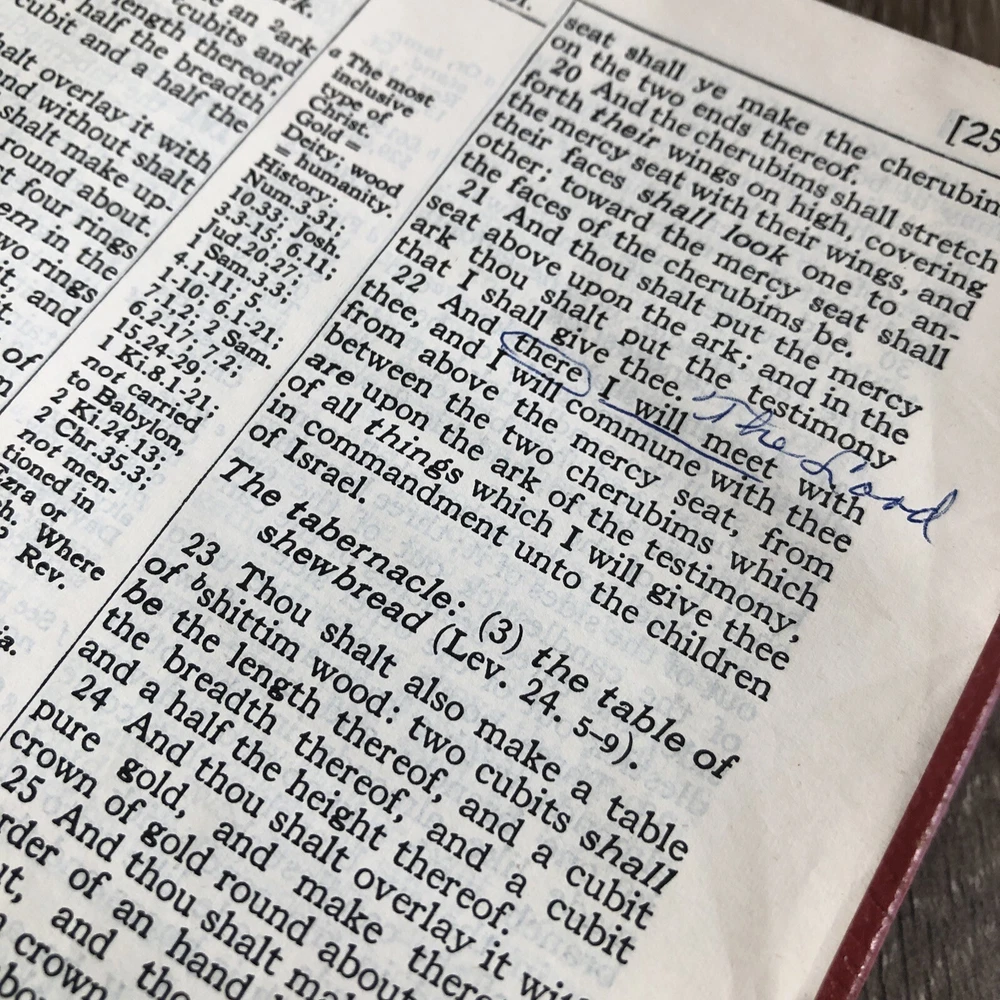 rk.
e an ²ark
cubits and
length thereof,
half the breadth
cubit and a half the
alt overlay it with
nd without shalt
shalt make up-
round about.
t four rings
em in the
wo rings
t, and
t.
of
a The most
inclusive
type of
Christ.
Gold =
Deity; wood
= humanity.
History:
Num.3.31;
10.33; Josh.
3.3-15; 6.11;
Jud.20.27;
1 Sam.3.3;
4.1-11; 5.
1-10; 6.1-21;
7.1,2; 2 Sam.
6.2-17; 7.2;
15.24-29;
1 Ki.8.1-21;
not carried
to Babylon,
2 Ki.24.13;
2 Chr.35.3;
not men-
tioned in
Ezra or
h. Where
Rev.
ia.
[25
seat shall ye make the cherubim
on the two ends thereof.
20 And the cherubims shall stretch
forth their wings on high, covering
the mercy seat with their wings, and
their faces shall look one to an-
other; toward the mercy seat shall
the faces of the cherubims be.
21 And thou shalt put the mercy
seat above upon the ark; and in the
ark thou shalt put the testimony
that I shall give thee. The Lord
22 And there I will meet with
thee, and I will commune with thee
from above the mercy seat, from
between the two cherubims which
are upon the ark of the testimony,
of all things which I will give thee
in commandment unto the children
of Israel.
The tabernacle: (3) the table of
shewbread (Lev. 24. 5-9).
23 Thou shalt also make a table
of bshittim wood: two cubits shall
be the length thereof, and a cubit
the breadth thereof, and a cubit
and a half the height thereof.
24 And thou shalt overlay it with
pure gold, and make there
crown of gold round about
25 And thou shalt ma
rder of an hand
ut, and tho
crown